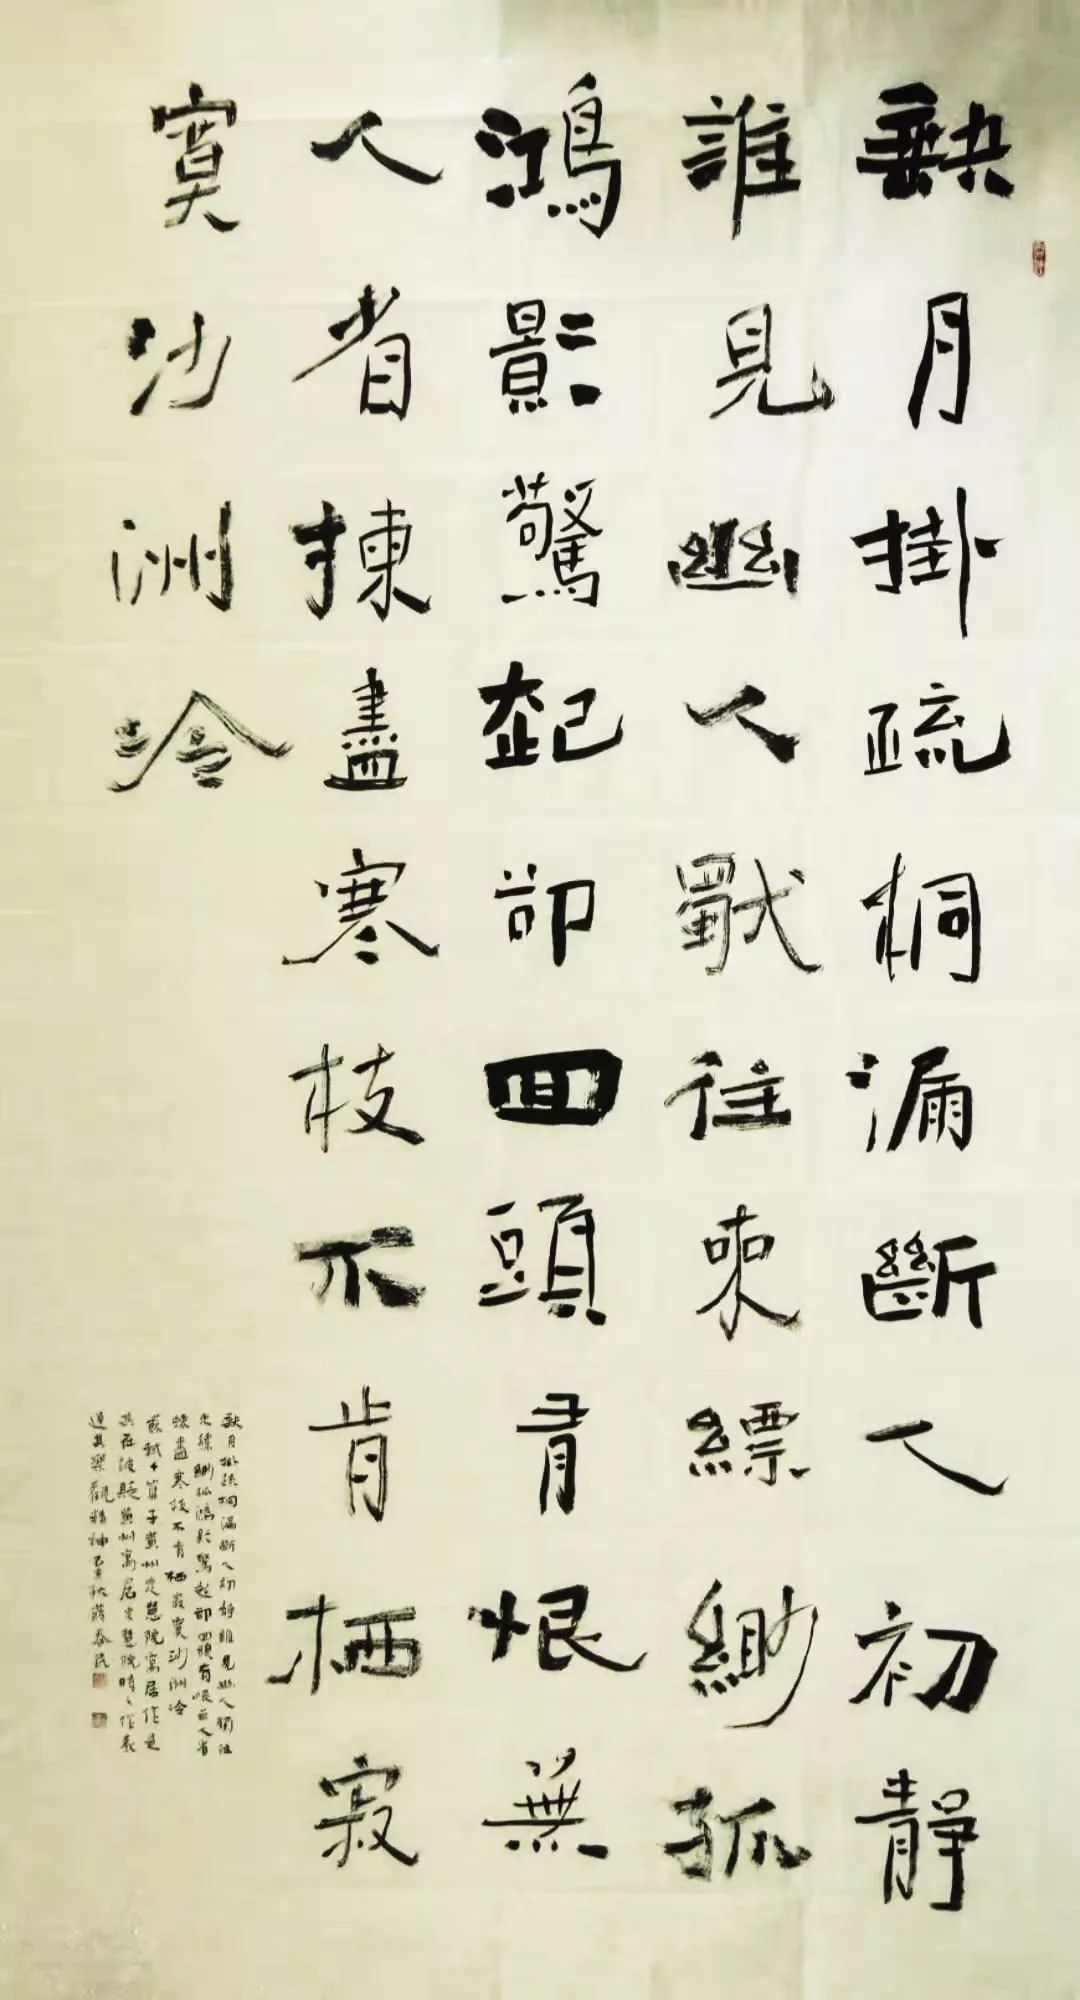 缺月掛疏桐漏斷人初靜
誰見幽人獨往來縹緲孤
鴻影驚起卻回頭有恨無
人省揀盡寒枝不肯栖寂
寞沙洲冷
缺月掛疏桐漏斷人初靜誰見幽人獨往
來縹緲孤鴻影驚起卻回頭有恨無人省
揀盡寒枝不肯栖寂寞沙洲冷
蘇軾卜算子黃州定慧院寓居作是
其在被貶黃州寓居定慧院時所作表
達其樂觀精神 秋